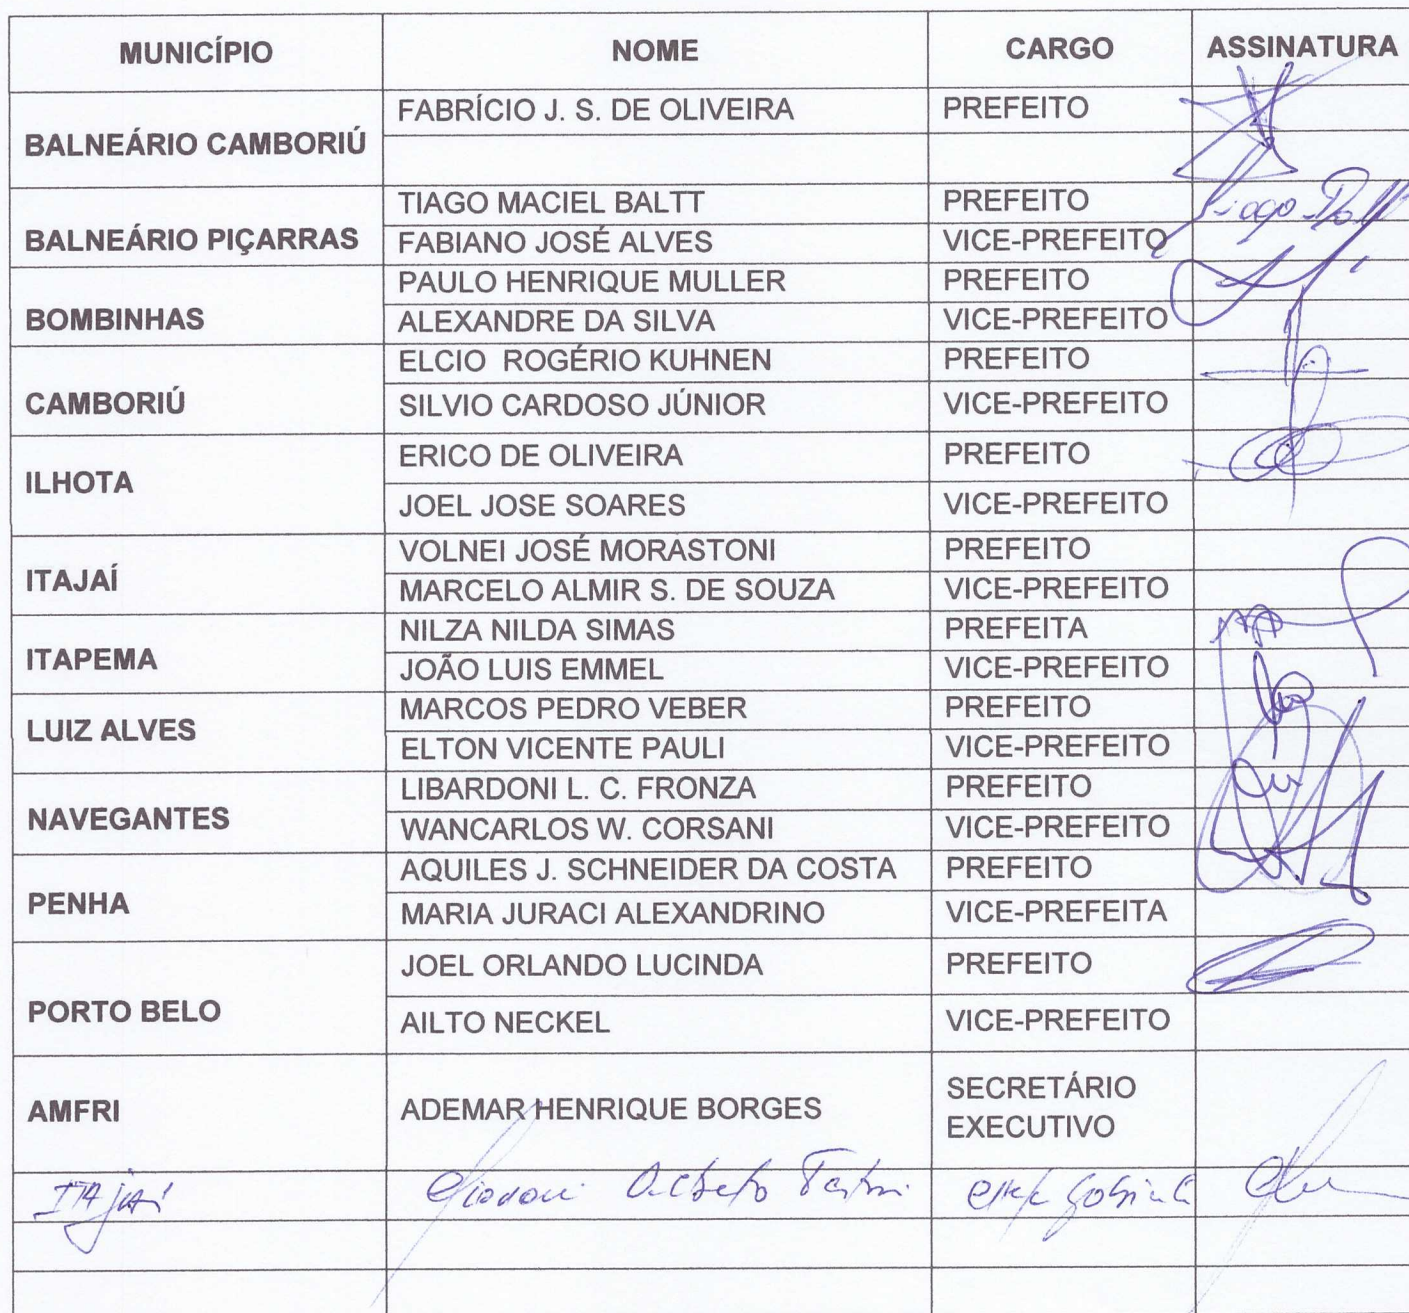 MUNICÍPIO NOME CARGO ASSINATURA
BALNEÁRIO CAMBORIÚ
FABRÍCIO J. S. DE OLIVEIRA PREFEITO
BALNEÁRIO PIÇARRAS
TIAGO MACIEL BALTT PREFEITO Tiago
FABIANO JOSÉ ALVES VICE-PREFEITO
BOMBINHAS
PAULO HENRIQUE MULLER PREFEITO
ALEXANDRE DA SILVA VICE-PREFEITO
CAMBORIÚ
ELCIO ROGÉRIO KUHNEN PREFEITO
SILVIO CARDOSO JÚNIOR VICE-PREFEITO
ILHOTA
ERICO DE OLIVEIRA PREFEITO
JOEL JOSE SOARES VICE-PREFEITO
ITAJAÍ
VOLNEI JOSÉ MORASTONI PREFEITO
MARCELO ALMIR S. DE SOUZA VICE-PREFEITO
ITAPEMA
NILZA NILDA SIMAS PREFEITA
JOÃO LUIS EMMEL VICE-PREFEITO
LUIZ ALVES
MARCOS PEDRO VEBER PREFEITO
ELTON VICENTE PAULI VICE-PREFEITO
NAVEGANTES
LIBARDONI L. C. FRONZA PREFEITO
WANCARLOS W. CORSANI VICE-PREFEITO
PENHA
AQUILES J. SCHNEIDER DA COSTA PREFEITO
MARIA JURACI ALEXANDRINO VICE-PREFEITA
PORTO BELO
JOEL ORLANDO LUCINDA PREFEITO
AILTO NECKEL VICE-PREFEITO
AMFRI ADEMAR HENRIQUE BORGES SECRETÁRIO
EXECUTIVO
ITAjaí Giovani Alberto